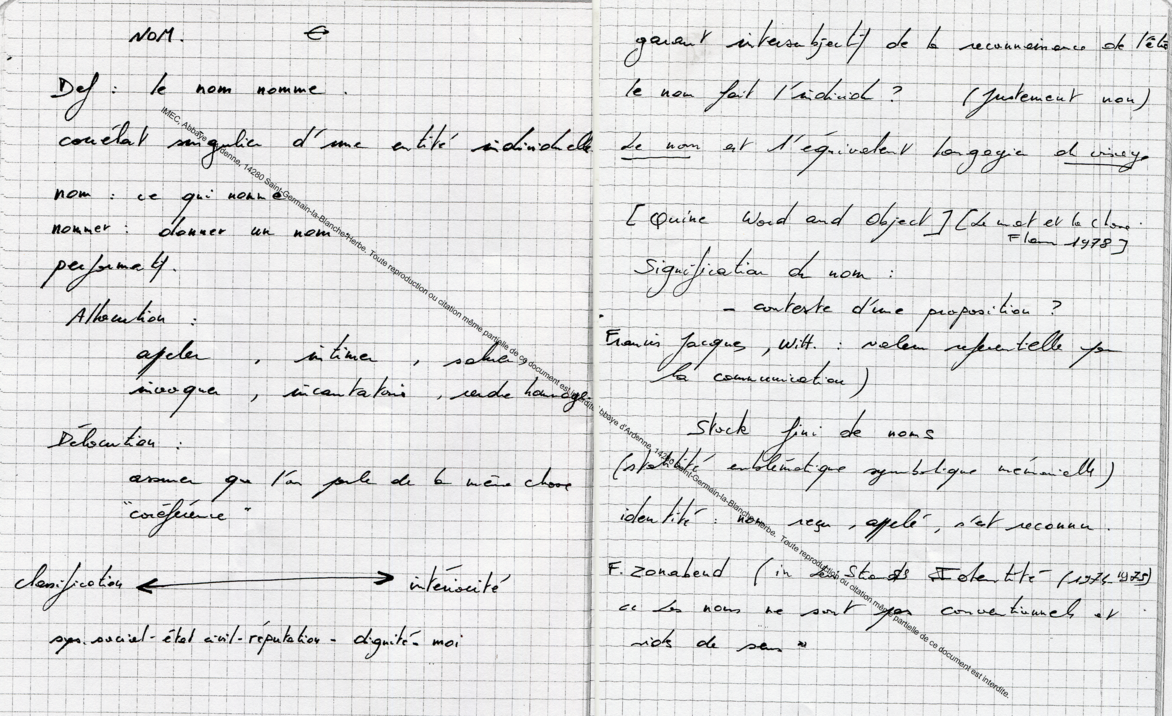 NOM. €
Def : le nom nomme.
corrélat singulier d'une entité individuelle
nom : ce qui nomme
nommer : donner un nom
performatif.
Allocution :
appeler , intimer , saluer,
invoquer , incantatoire , rendre hommage.
Délocution :
assurer que l'on parle de la même chose
"coréférence"
classification ⟷ intériorité
sys. social - état civil - réputation - dignité - moi
garant intersubjectif de la reconnaissance de l'être
le nom fait l'individu ? (justement non)
Le nom est l'équivalent langagier du visage
[Quine Word and Object] [Le mot et la chose.
Flam 1978]
Signification du nom :
- contexte d'une proposition ?
Francis Jacques, Witt. : valeur référentielle par
la communication)
Stock fini de noms
(stabilité emblématique symbolique mémorielle)
identité : nom reçu, appelé, s'est reconnu.
F. Zonabend (in Identité (1974-1975)
"Les noms ne sont pas conventionnels et
vides de sens"
IMEC, Abbaye d'Ardenne, 14280 Saint-Germain-la-Blanche-Herbe. Toute reproduction ou citation même partielle de ce document est interdite.
Abbaye d'Ardenne, 14280 Saint-Germain-la-Blanche-Herbe. Toute reproduction ou citation même partielle de ce document est interdite.